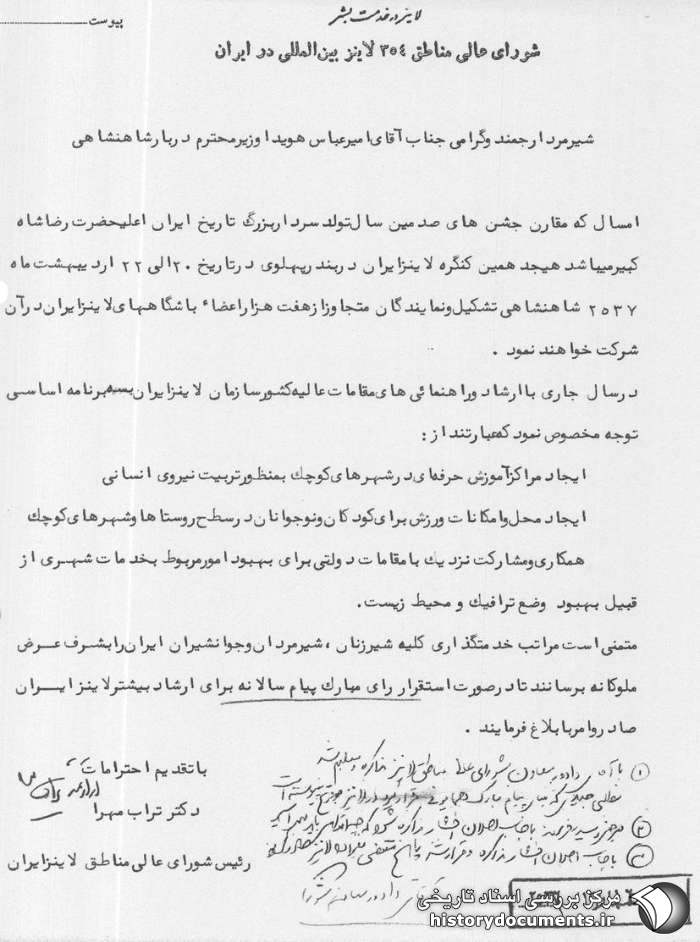 لاینز در خدمت بشر
پیوست
شورای عالی مناطق ۳۵۴ لاینز بین‌المللی در ایران
شیرمرد ارجمند وگرامی جناب آقای امیرعباس هویدا وزیرمحترم دربارشاهنشاهی
امسال که مقارن جشن های صدمین سال تولد سرداربزرگ تاریخ ایران اعلیحضرت رضاشاه
کبیرمیباشد هیجدهمین کنگره لاینزایران دربندرپهلوی درتاریخ ۲۰ الی ۲۲ اردیبهشت ماه
۲۵۳۷ شاهنشاهی تشکیل ونمایندگان متجاوزازهفت هزاراعضاء باشگاههای لاینزایران درآن
شرکت خواهند نمود .
درسال جاری باارشاد وراهنمائی های مقامات عالیه کشورسازمان لاینزایران بسه برنامه اساسی
توجه مخصوص نمود که عبارتند از :
ایجاد مراکزآموزش حرفه‌ای درشهرهای کوچک بمنظورتربیت نیروی انسانی
ایجاد محل وامکانات ورزش برای کودکان ونوجوانان درسطح روستاها وشهرهای کوچک
همکاری ومشارکت نزدیک بامقامات دولتی برای بهبود امورمربوط بخدمات شهری از
قبیل بهبود وضع ترافیک و محیط زیست .
متمنی است مراتب خدمتگذاری کلیه شیرزنان ، شیرمردان وجوانشیران ایران رابشرف عرض
ملوکانه برسانند تادرصورت استقرار رای مبارک پیام سالانه برای ارشاد بیشترلاینز ایران
صادروامربابلاغ فرمایند .
باتقدیم احترامات
دکتر تراب مهرا
رئیس شورای عالی مناطق لاینزایران
۱) با آقای دادور معاون شورای عالی مناطق لاینز مذاکره و معلوم شد
۲)
۳)
آقای دادور معاون شورا
مرکز بررسی اسناد تاریخی
historydocuments.ir